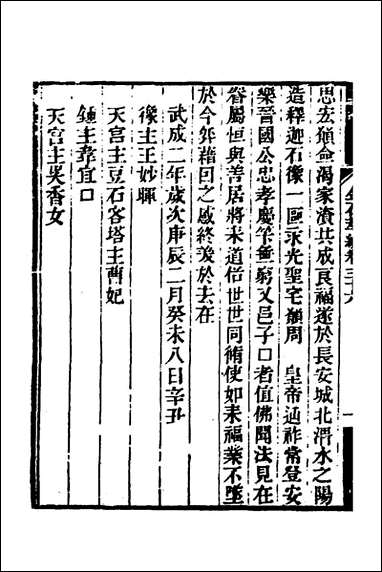 金石萃編卷三十六
一
思宏猶侖渴家瀆共成良福遂於長安城北渭水之陽
造釋迦石像一區永光聖宅願周　皇帝延祚常登安
樂晉國公忠孝慶筭無窮又邑子口者值佛聞法見在
眷屬恒與善居將來道俗世世同脩使如來福業不墜
於今年藉回之感終美於去在
武成二年歲次庚辰二月癸未八日辛丑
像主王妙暉
天宮主豆石客塔主曹妃
鍾主韋宜口
天宮主吳香女